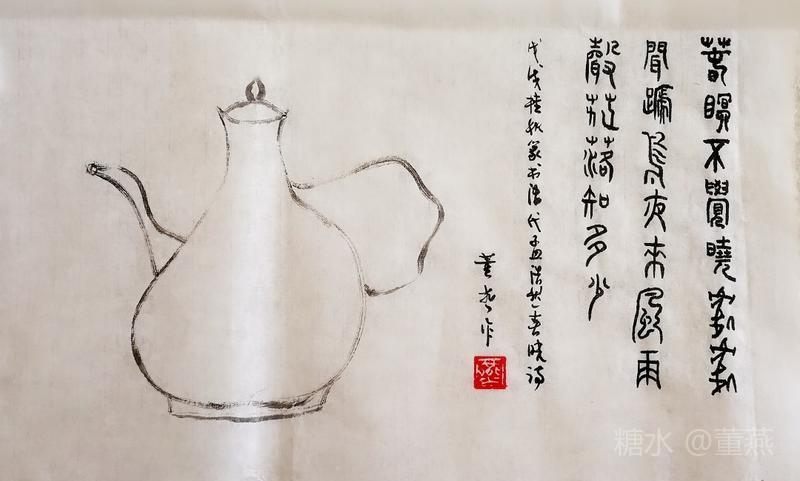 春眠不覺曉處處
聞啼鳥夜來風雨
聲花落知多少
戊戌桂秋篆书唐代孟浩然春晓诗
董燕作
糖水 @董燕